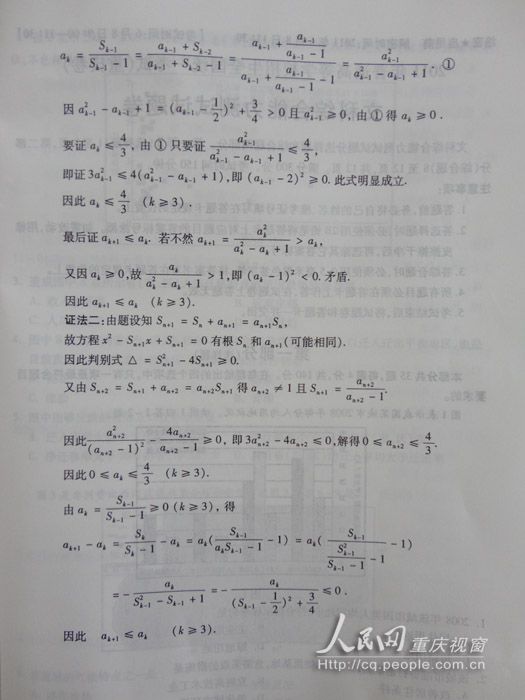 a_k = \frac{S_{k-1}}{S_{k-1} - 1} = \frac{a_{k-1} + S_{k-2}}{a_{k-1} + S_{k-2} - 1} = \frac{a_{k-1} + \frac{a_{k-1}}{a_{k-1} - 1}}{a_{k-1} + \frac{a_{k-1}}{a_{k-1} - 1} - 1} = \frac{a_{k-1}^2}{a_{k-1}^2 - a_{k-1} + 1}. ①
因 a_{k-1}^2 - a_{k-1} + 1 = (a_{k-1} - \frac{1}{2})^2 + \frac{3}{4} > 0 且 a_{k-1}^2 ≥ 0, 由 ① 得 a_k ≥ 0.
要证 a_k ≤ \frac{4}{3}, 由 ① 只要证 \frac{a_{k-1}^2}{a_{k-1}^2 - a_{k-1} + 1} ≤ \frac{4}{3},
即证 3a_{k-1}^2 ≤ 4(a_{k-1}^2 - a_{k-1} + 1), 即 (a_{k-1} - 2)^2 ≥ 0. 此式明显成立.
因此 a_k ≤ \frac{4}{3} (k ≥ 3).
最后证 a_{k+1} ≤ a_k. 若不然 a_{k+1} = \frac{a_k^2}{a_k^2 - a_k + 1} > a_k,
又因 a_k ≥ 0, 故 \frac{a_k}{a_k^2 - a_k + 1} > 1, 即 (a_k - 1)^2 < 0. 矛盾.
因此 a_{k+1} ≤ a_k (k ≥ 3).
证法二：由题设知 S_{n+1} = S_n + a_{n+1} = a_{n+1}S_n,
故方程 x^2 - S_{n+1}x + S_{n+1} = 0 有根 S_n 和 a_{n+1} (可能相同).
因此判别式 △ = S_{n+1}^2 - 4S_{n+1} ≥ 0.
又由 S_{n+2} = S_{n+1} + a_{n+2} = a_{n+2}S_{n+1} 得 a_{n+2} ≠ 1 且 S_{n+1} = \frac{a_{n+2}}{a_{n+2} - 1}.
因此 \frac{a_{n+2}^2}{(a_{n+2} - 1)^2} - \frac{4a_{n+2}}{a_{n+2} - 1} ≥ 0, 即 3a_{n+2}^2 - 4a_{n+2} ≤ 0, 解得 0 ≤ a_{n+2} ≤ \frac{4}{3}.
因此 0 ≤ a_k ≤ \frac{4}{3} (k ≥ 3).
由 a_k = \frac{S_{k-1}}{S_{k-1} - 1} ≥ 0 (k ≥ 3), 得
a_{k+1} - a_k = \frac{S_k}{S_k - 1} - a_k = a_k(\frac{S_{k-1}}{a_kS_{k-1} - 1} - 1) = a_k(\frac{S_{k-1}}{\frac{S_{k-1}^2}{S_{k-1} - 1} - 1} - 1)
= -\frac{a_k}{S_{k-1}^2 - S_{k-1} + 1} = -\frac{a_k}{(S_{k-1} - \frac{1}{2})^2 + \frac{3}{4}} ≤ 0.
因此 a_{k+1} ≤ a_k (k ≥ 3).
人民网 重庆视窗
http://cq.people.com.cn